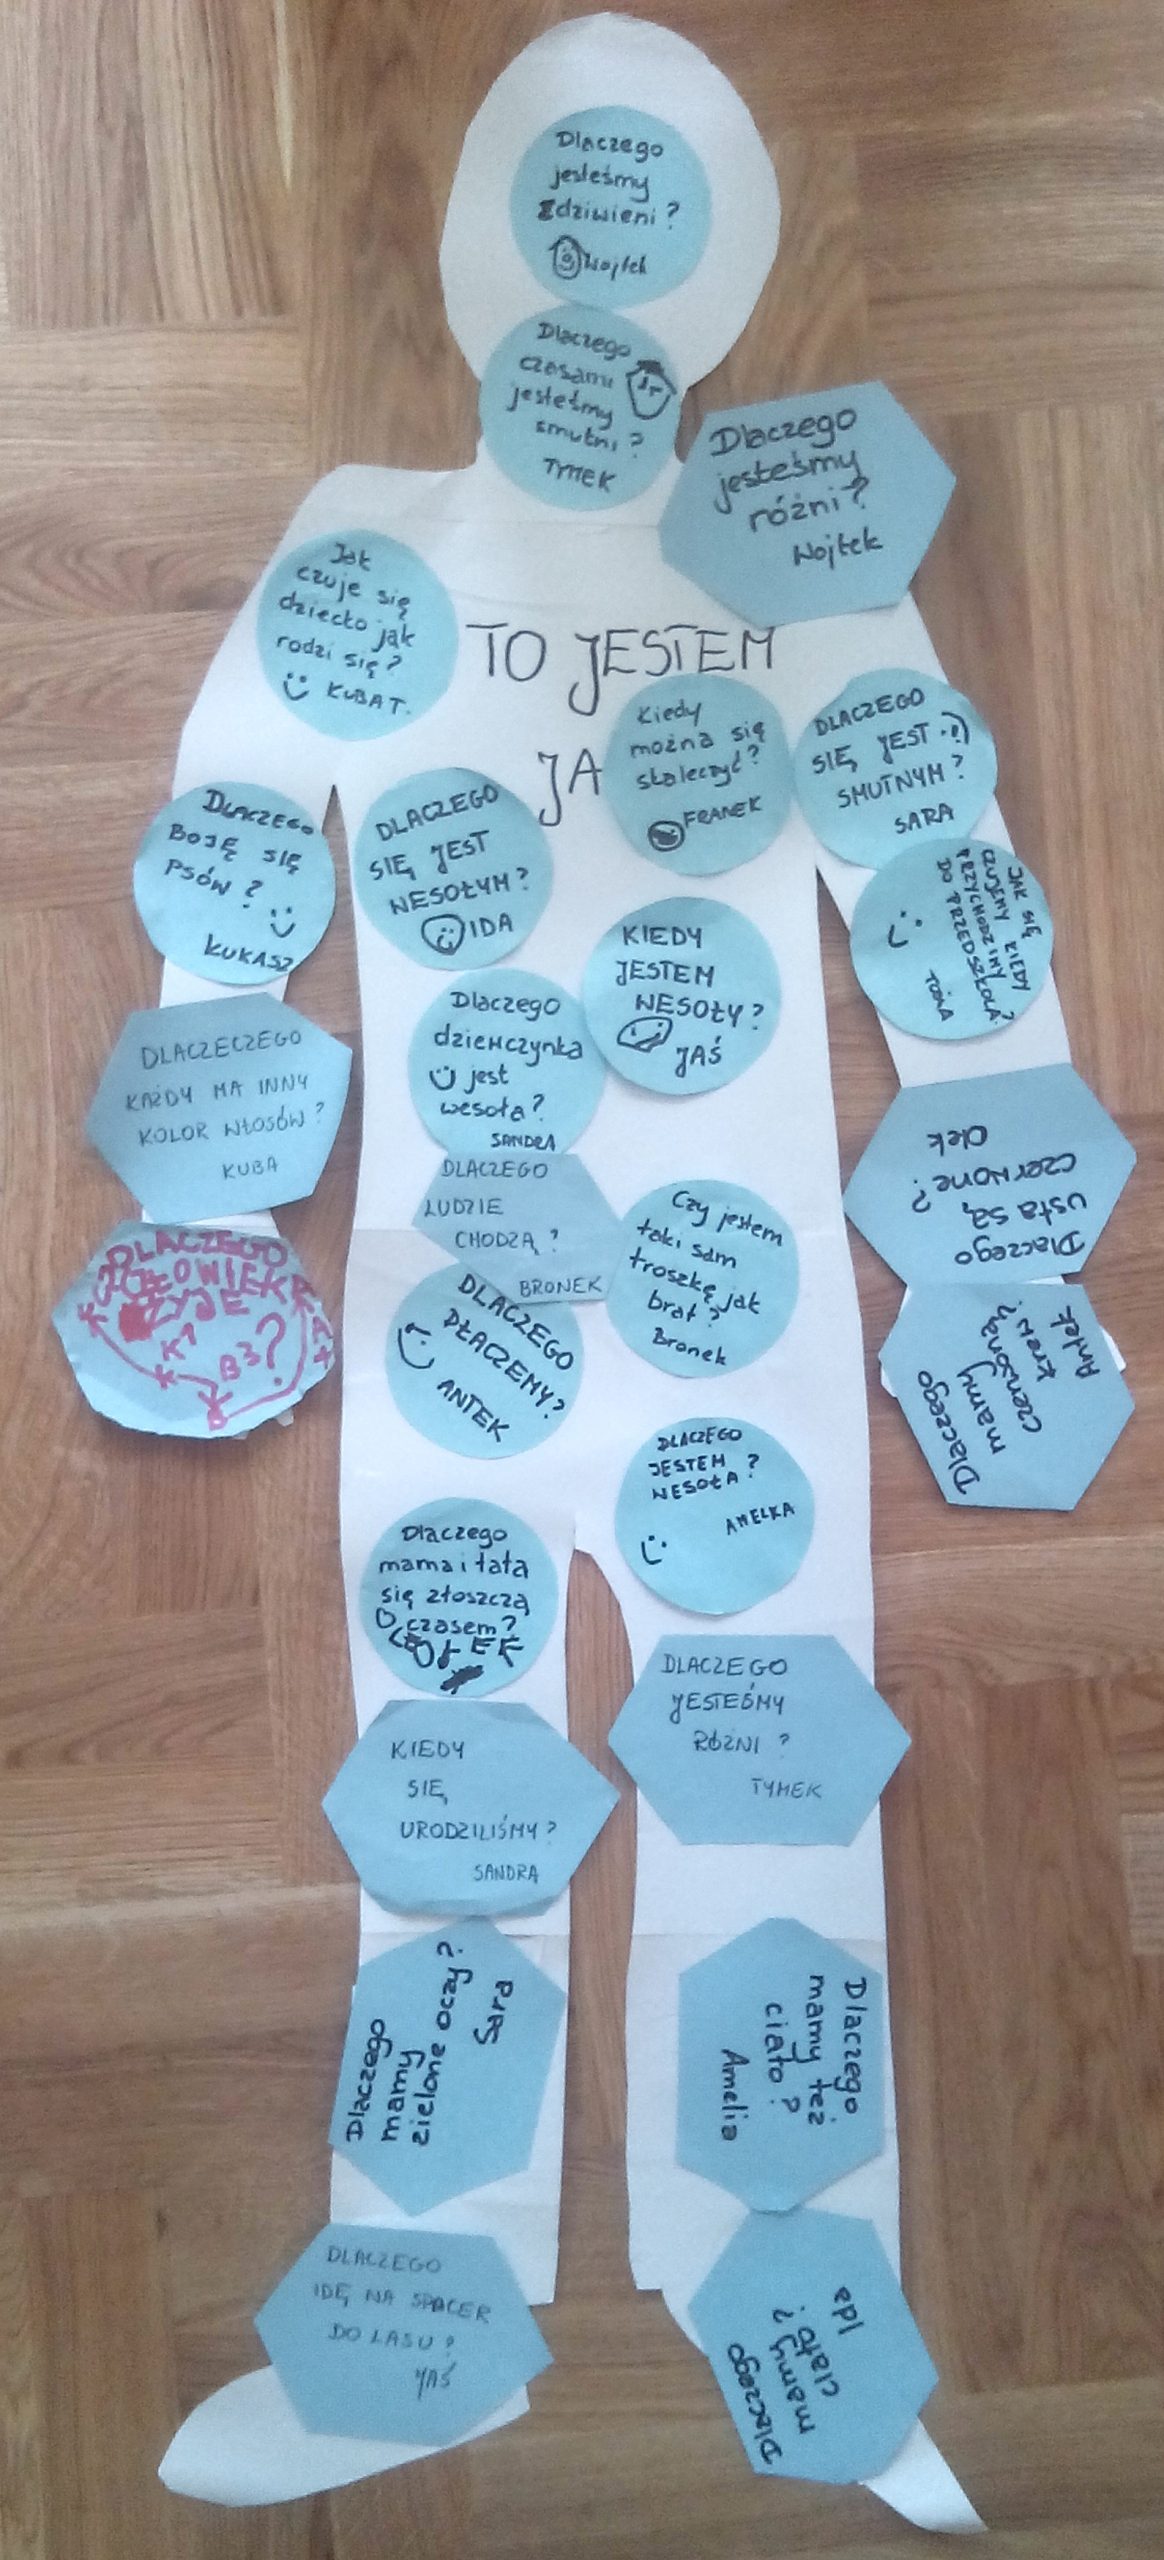 Dlaczego
jesteśmy
zdziwieni?
Wojtek
Dlaczego
czasami
jesteśmy
smutni?
TYMEK
Dlaczego
jesteśmy
różni?
Wojtek
Jak
czuje się
dziecko jak
rodzi się?
KUBA T.
TO JESTEM
JA
Kiedy
można się
skaleczyć?
FRANEK
DLACZEGO
SIĘ JEST
SMUTNYM?
SARA
DLACZEGO
BOJĘ SIĘ
PSÓW?
ŁUKASZ
DLACZEGO
SIĘ JEST
WESOŁYM?
IDA
JAK SIĘ
CZUJEMY KIEDY
PRZYCHODZIMY
DO PRZEDSZKOLA?
KIEDY
JESTEM
WESOŁY?
JAŚ
Dlaczego
dziewczynka
jest
wesoła?
SANDRA
DLACZECZEGO
KAŻDY MA INNY
KOLOR WŁOSÓW?
KUBA
Dlaczego
usta są
czerwone?
Olek
DLACZEGO
LUDZIE
CHODZĄ?
BRONEK
Czy jestem
taki sam
troszkę jak
brat?
Bronek
DLACZEGO
CZŁOWIEK
ŻYJE
?
DLACZEGO
PŁACZEMY?
ANTEK
Dlaczego
mamy
czerwoną
krew?
Antek
DLACZEGO
JESTEM
WESOŁA?
AMELKA
Dlaczego
mama i tata
się złoszczą
czasem?
DLACZEGO
JESTEŚMY
RÓŻNI?
TYMEK
KIEDY
SIĘ
URODZILIŚMY?
SANDRA
Dlaczego
mamy
zielone oczy?
Sara
Dlaczego
mamy też
ciało?
Amelia
DLACZEGO
IDĘ NA SPACER
DO LASU?
JAŚ
Dlaczego
mamy
ciało?
Ida